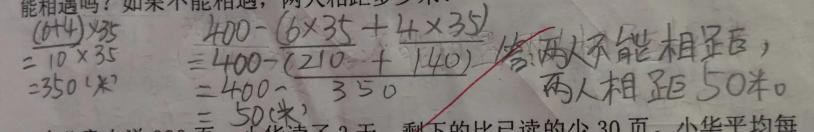 能相遇吗？如果不能相遇，两人相距多少米？
(6+4)×35
=10×35
=350(米)
400-(6×35+4×35)
=400-(210+140)
=400-350
=50(米)
答:两人不能相距，
两人相距50米。
剩下的比已读的少30页，小华平均每